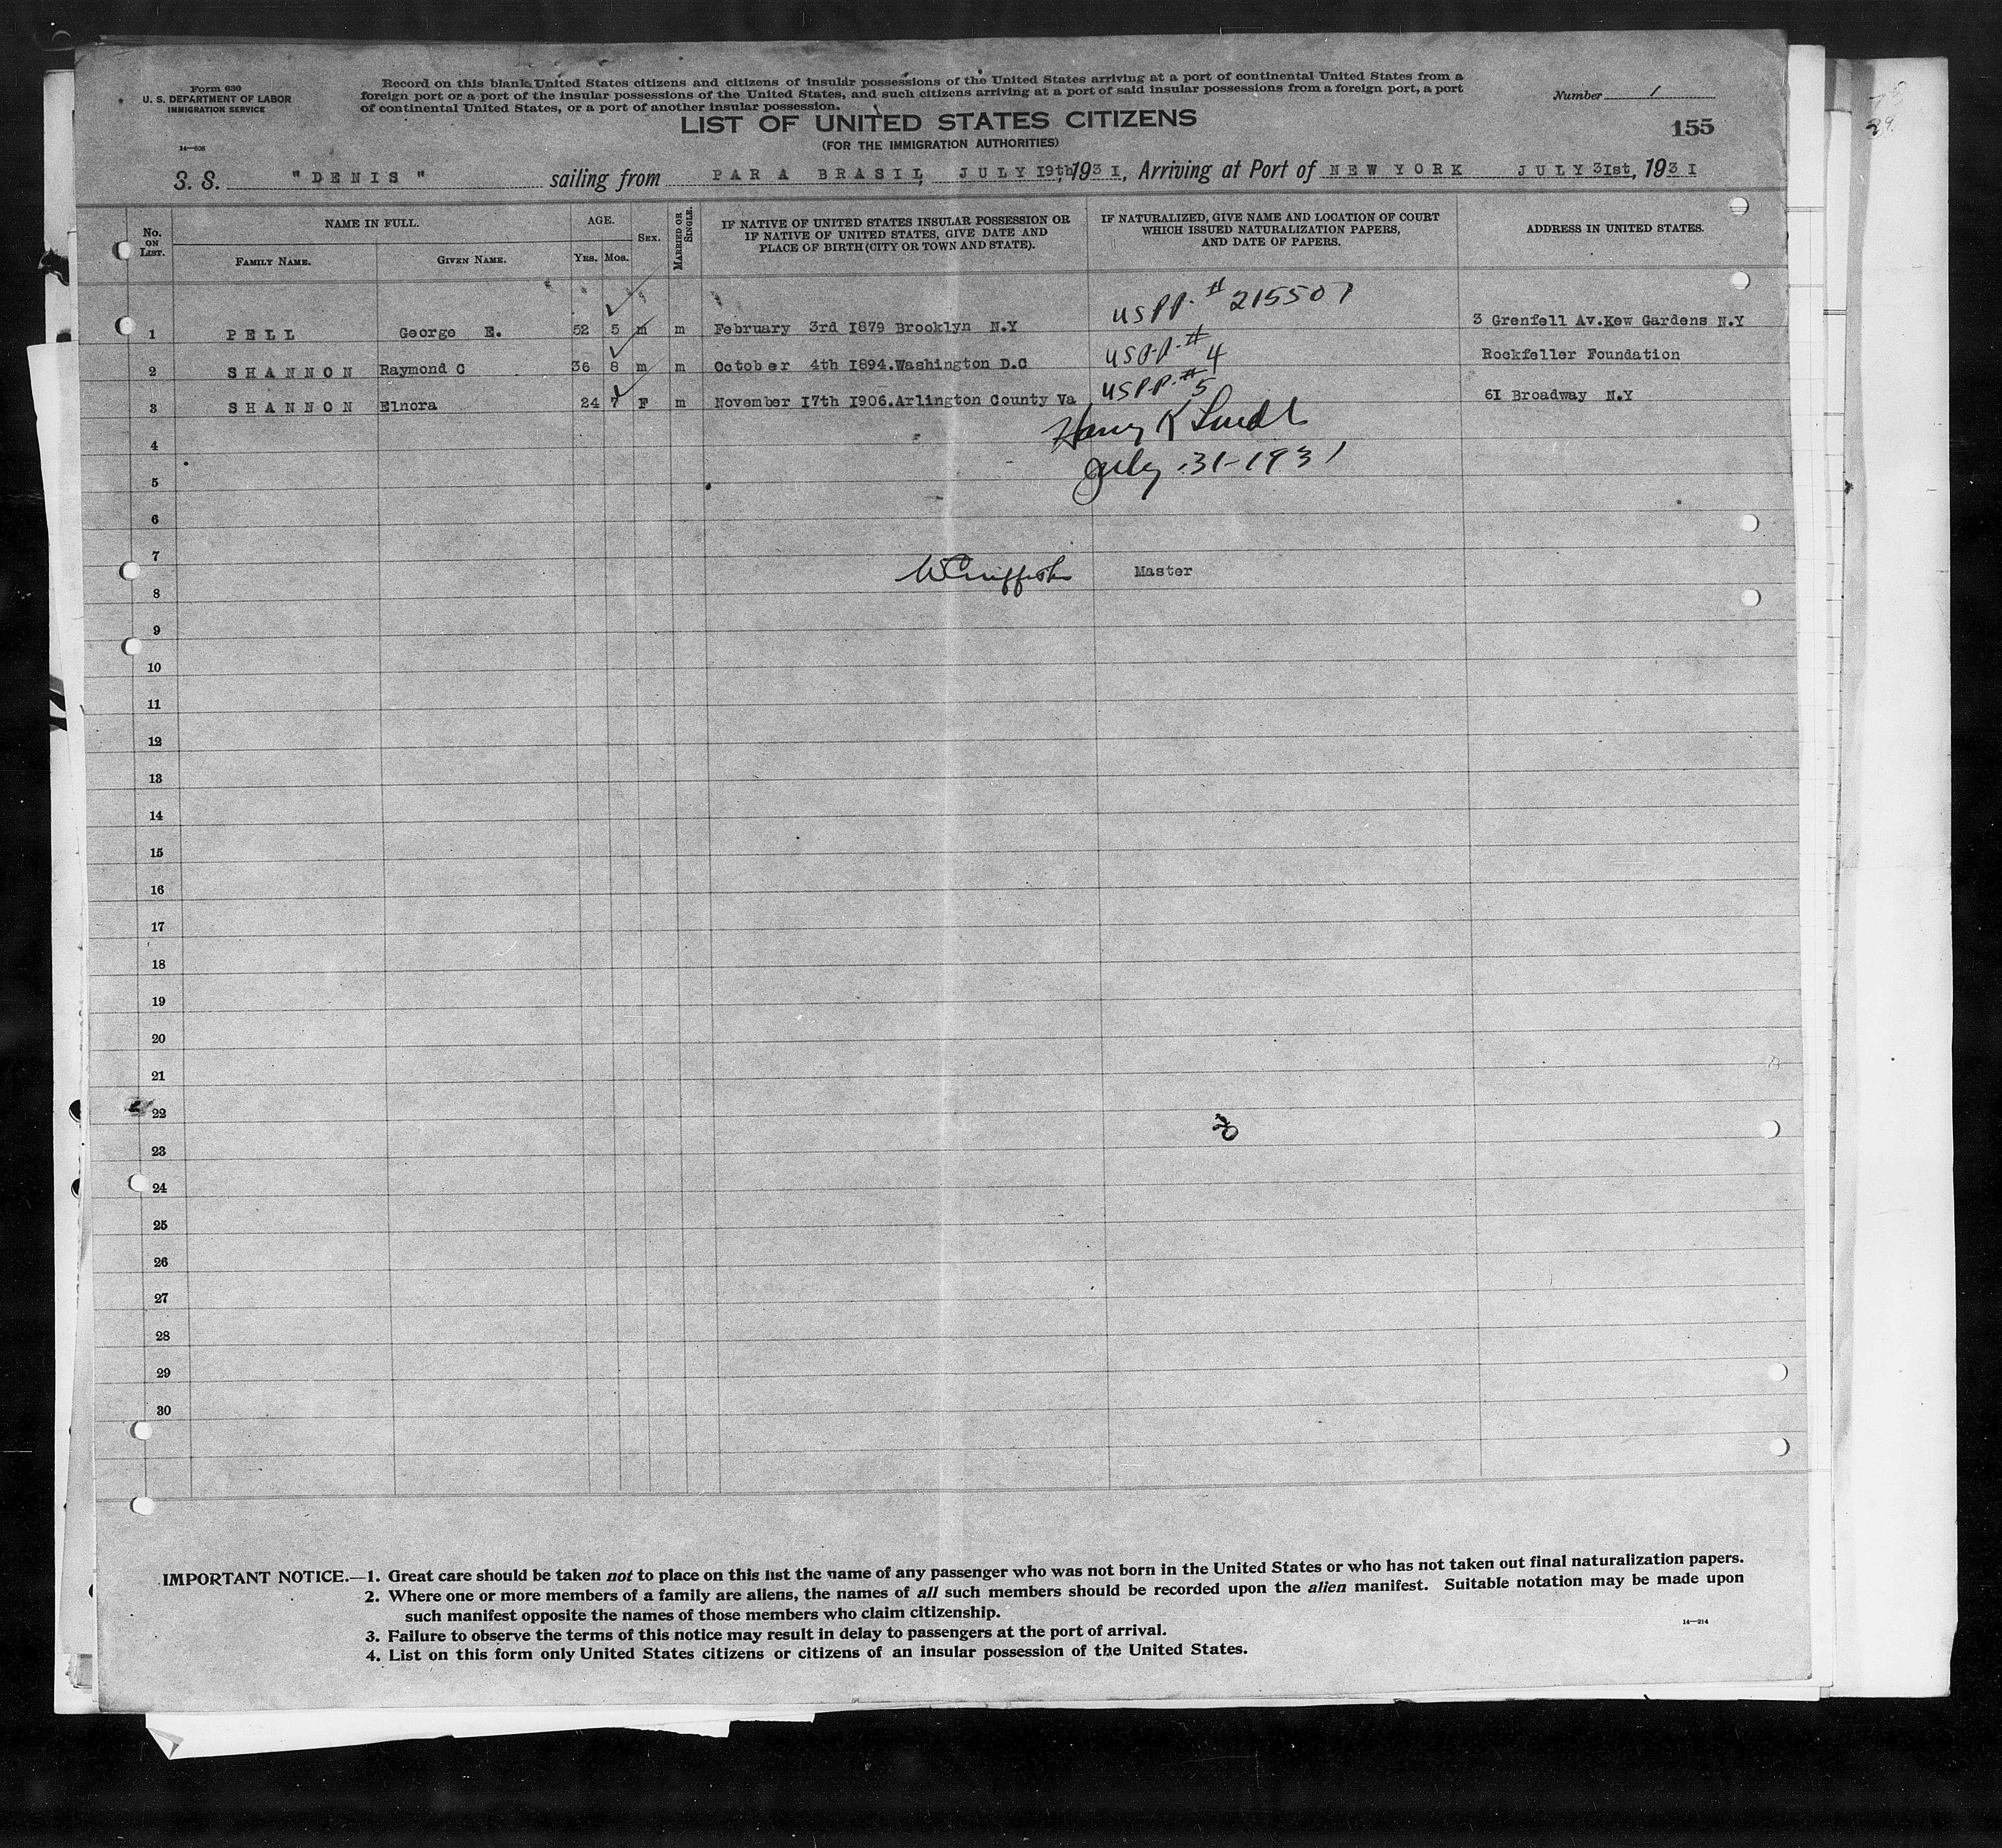 Form 630
U. S. DEPARTMENT OF LABOR
IMMIGRATION SERVICE
14—606
Record on this blank United States citizens and citizens of insular possessions of the United States arriving at a port of continental United States from a
foreign port or a port of the insular possessions of the United States, and such citizens arriving at a port of said insular possessions from a foreign port, a port
of continental United States, or a port of another insular possession.
Number 1
LIST OF UNITED STATES CITIZENS
155
(FOR THE IMMIGRATION AUTHORITIES)
S. S. "DENIS" sailing from PARA BRASIL, JULY 19th, 1931, Arriving at Port of NEW YORK JULY 31st, 1931
No. ON LIST. NAME IN FULL. AGE. SEX. MARRIED OR SINGLE. IF NATIVE OF UNITED STATES INSULAR POSSESSION OR IF NATIVE OF UNITED STATES, GIVE DATE AND PLACE OF BIRTH (CITY OR TOWN AND STATE). IF NATURALIZED, GIVE NAME AND LOCATION OF COURT WHICH ISSUED NATURALIZATION PAPERS, AND DATE OF PAPERS. ADDRESS IN UNITED STATES.
FAMILY NAME. GIVEN NAME. Yrs. Mos.
1 PELL George E. 52 5 m m February 3rd 1879 Brooklyn N.Y USPP. # 215507 3 Grenfell Av.Kew Gardens N.Y
2 SHANNON Raymond C 36 8 m m October 4th 1894.Washington D.C USPP. # 4 Rockfeller Foundation
3 SHANNON Elnora 24 7 F m November 17th 1906.Arlington County Va USPP. # 5 61 Broadway N.Y
4 Harry K
5 July 31-1931
6
7
Master
8
9
10
11
12
13
14
15
16
17
18
19
20
21
22
23
24
25
26
27
28
29
30
IMPORTANT NOTICE.—1. Great care should be taken not to place on this list the name of any passenger who was not born in the United States or who has not taken out final naturalization papers.
2. Where one or more members of a family are aliens, the names of all such members should be recorded upon the alien manifest. Suitable notation may be made upon
such manifest opposite the names of those members who claim citizenship.
3. Failure to observe the terms of this notice may result in delay to passengers at the port of arrival.
4. List on this form only United States citizens or citizens of an insular possession of the United States.
14—214